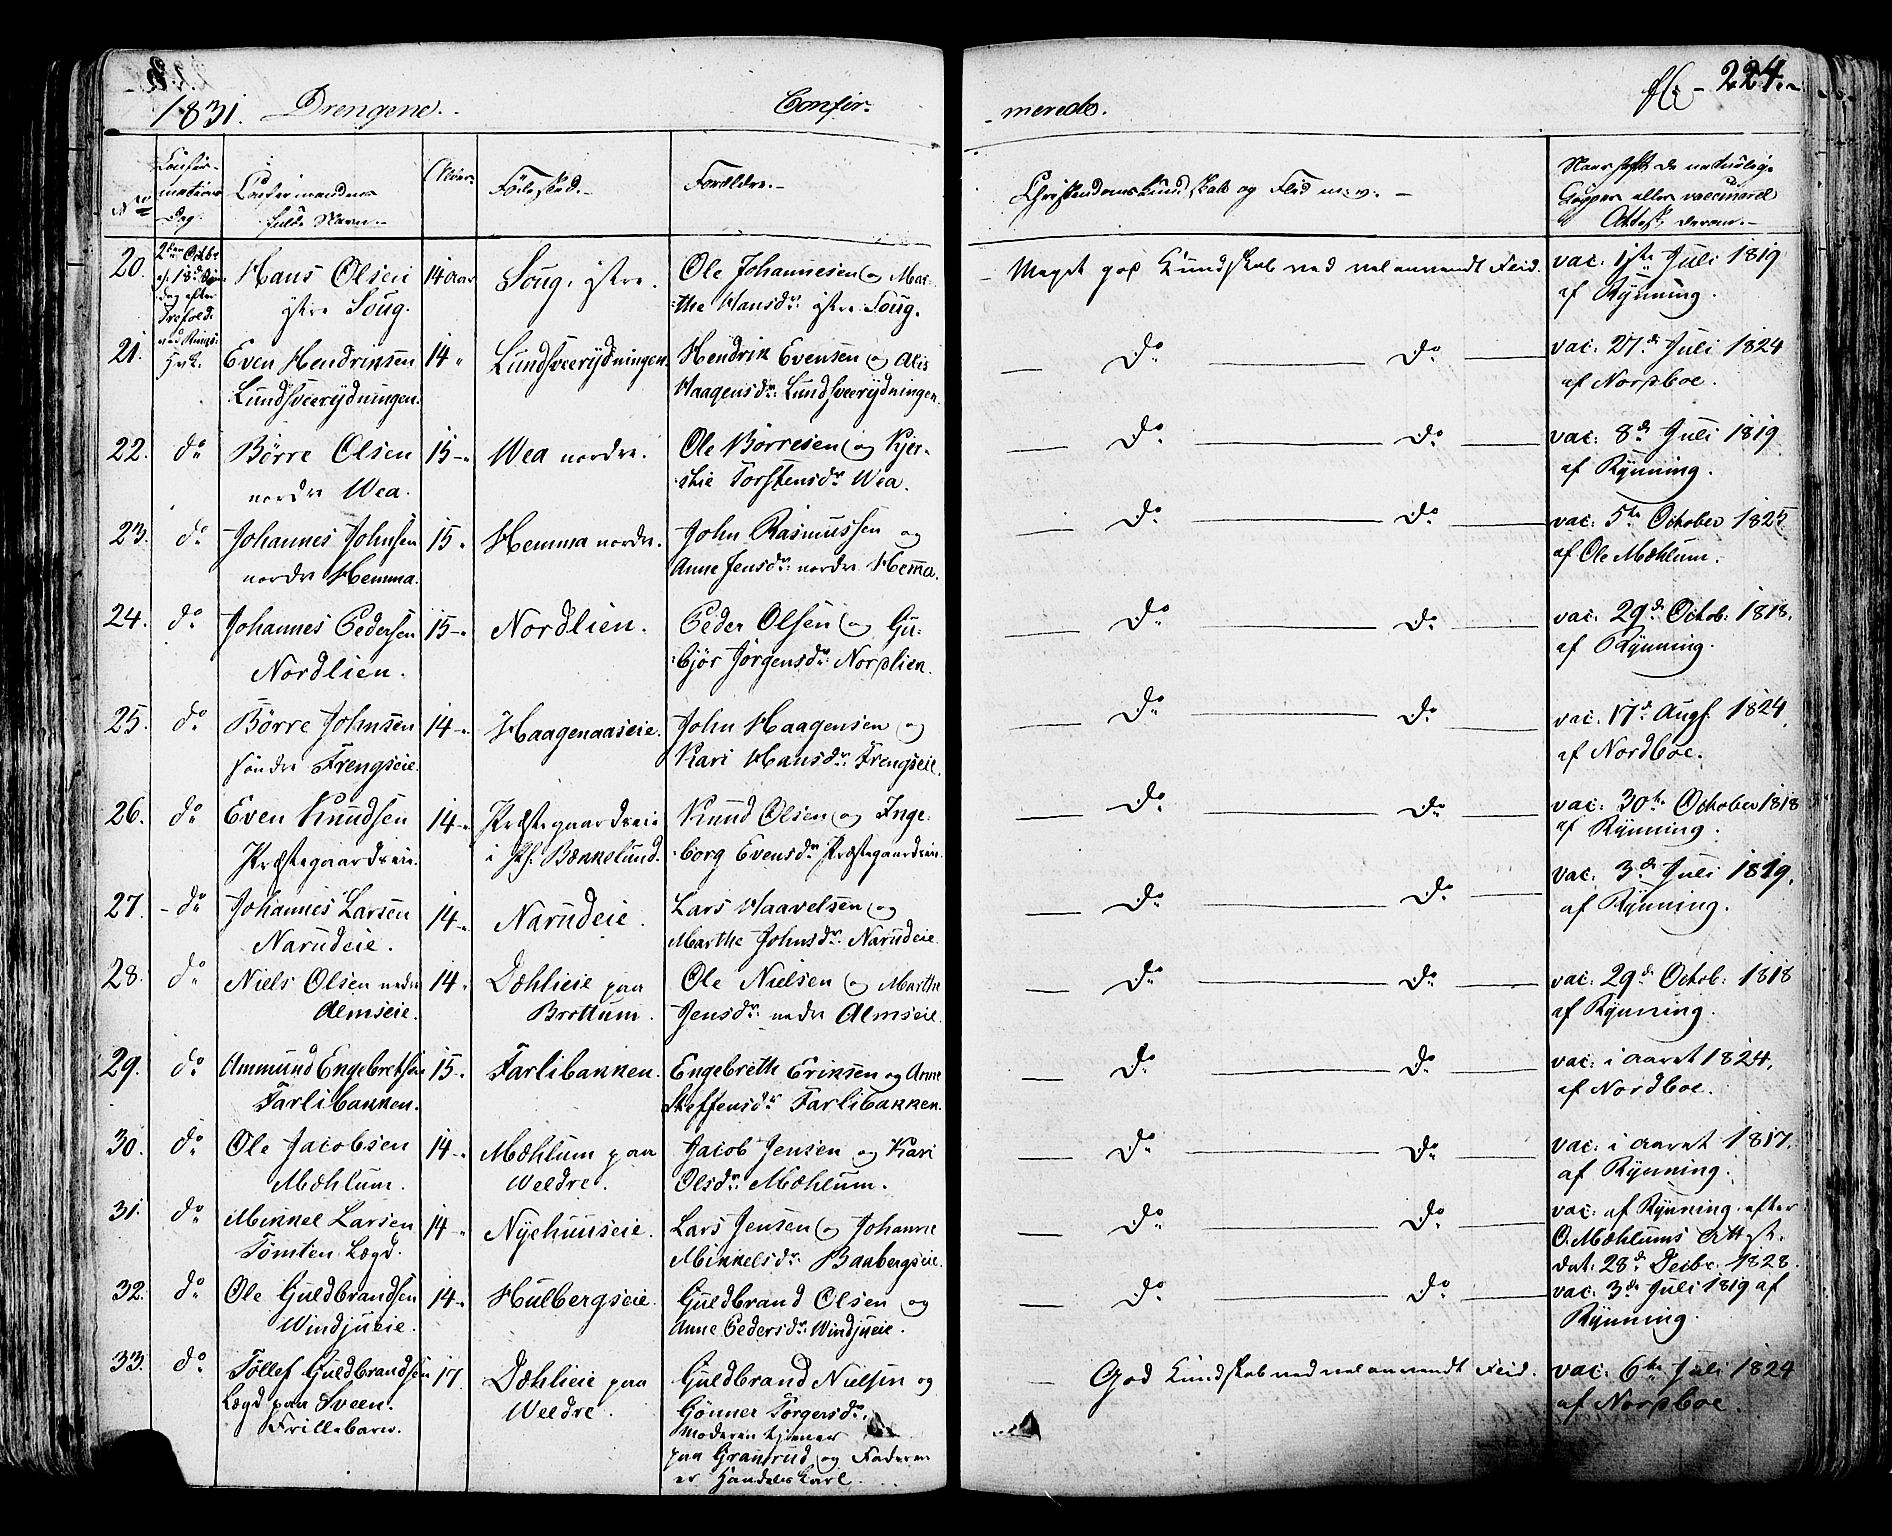 1831. Drengene. Confir-
-merede. 224.
No
Confir-
mations
Dag.
Confirmandens
fulde Navn.
Alder.
Födested.
Forældre.
Christendomskundskab og Flid m.v.
Naar havt de naturlige
Kopper eller vaccinered
Attest derom.
20.
2den Octbr
18de Søn-
dag efter
Trefold.
ved Rings.
Hrk.
Hans Olsen
östre Soug.
14 aar
Soug, östre.
Ole Johannesen og Mar-
the Hansdr: östre Soug.
Meget god Kundskab ved vel anvendt Flid.
vac: 1ste Juli 1819
af Rÿnning.
21.
Even Hendriksen
Lundsveerÿdningen.
14
Lundsveerÿdningen.
Hendrik Evensen og Alis
Haagensdr: Lundsveerÿdningen.
Do Do
vac: 27de Juli 1824
af Nordboe.
22. do
Börre Olsen
nordre Wea.
15
Wea nordre.
Ole Börresen og Kjer-
stie Torstensdr: Wea.
Do Do
vac: 8de Juli 1819
af Rÿnning.
23. do
Johannes Johnsen
nordre Hemma.
15
Hemma nordre.
John Rasmussen og
Anne Jensdr: nordre Hemma.
Do Do
vac: 5te October 1825
af Ole Mæhlum.
24. do
Johannes Pedersen
Nordlien.
15
Nordlien.
Peder Olsen og Gu-
björ Jörgensdr: Nordlien.
Do Do
vac: 29de Octob: 1818.
af Rÿnning.
25. do
Börre Johnsen
söndre Frengseie.
14
Haagenaaseie.
John Haagensen og
Kari Hansdr: Frengseie.
Do Do
vac: 17de Augs. 1824.
af Nordboe.
26. do
Even Knudsen
Præstegaardseie.
14
Præstegaardseie
i Bækkelund.
Knud Olsen og Inge-
borg Evensdr: Præstegaardseie.
Do Do
vac: 30te October 1818
af Rÿnning.
27. do
Johannes Larsen
Narudeie.
14
Narudeie.
Lars Haavelsen og
Marthe Johnsdr: Narudeie.
Do Do
vac: 3de Juli 1819.
af Rÿnning.
28. do
Niels Olsen nedre
Almseie.
14
Dæhlieie paa
Brottum.
Ole Nielsen og Marthe
Jensdr: nedre Almseie.
Do Do
vac: 29de Octob: 1818
af Rÿnning.
29. do
Ammund Engebretsen
Farlibakken.
15
Farlibakken.
Engebreth Eriksen og Anne
Steffensdr: Farlibakken.
Do Do
vac: i aaret 1824.
af Nordboe.
30. do
Ole Jacobsen
Mæhlum.
14
Mæhlum paa
Weldre.
Jacob Jensen og Kari
Olsdr: Mæhlum.
Do Do
vac: i aaret 1817.
af Rÿnning.
31. do
Mikkel Larsen
Tömten Lægd.
14
Nÿehuuseie.
Lars Jensen og Johanne
Mikkelsdr: Baabergseie.
Do Do
vac: af Rÿnning, efter
O: Mæhlums Attest.
dat: 28de Decbr. 1828.
32. do
Ole Guldbrandsen
Windjueie.
14
Hulbergseie.
Guldbrand Olsen og
Anne Pedersdr: Windjueie.
Do Do
vac: 3de Juli 1819 af
Rÿnning.
33. do
Tollef Guldbrandsen
Lægd paa Sveen.
Frillebarn.
17.
Dæhlieie paa
Weldre.
Guldbrand Nielsen og
Gönner Torgersdr:
Moderen tjener
paa Granrud, og Faderen
er Handelskarl.
God Kundskab ved vel anvendt Flid.
vac: 6te Juli 1824
af Nordboe.